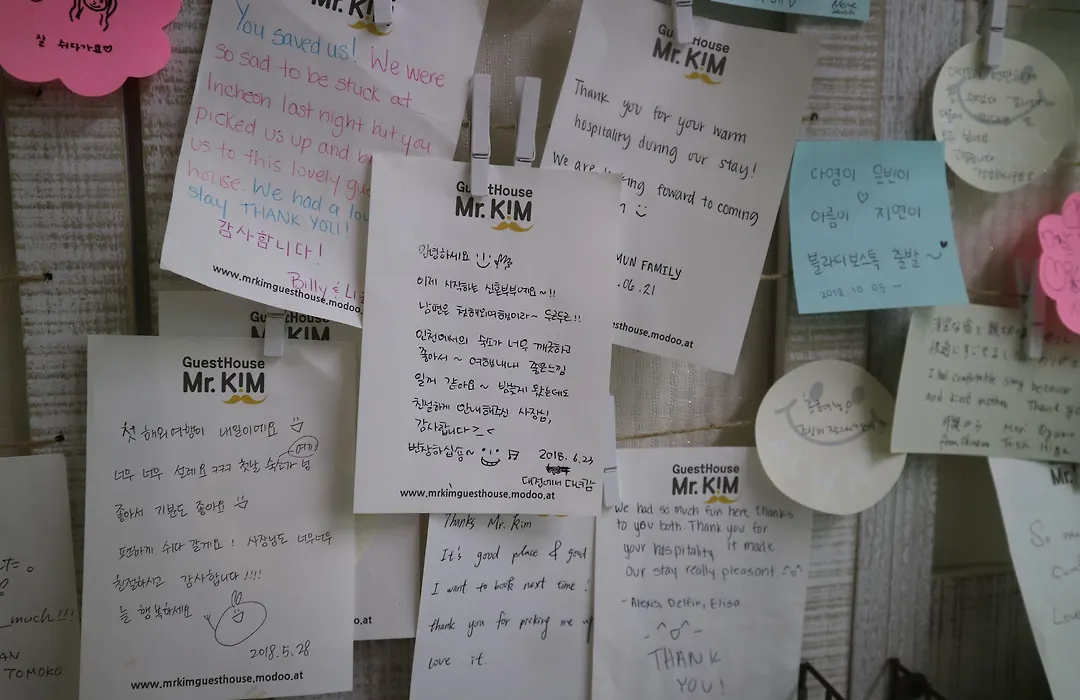 잘 쉬다가요♡
Mr. K!M
You saved us! We were
so sad to be stuck at
Incheon last night but you
picked us up and
us to this lovely
house. We had a
stay THANK YOU!
감사합니다!
Billy &
www.mrkimguesthouse.modoo.
GuestHouse
Mr. K!M
Thank you for your warm
hospitality during our stay!
We are foward to coming
FAMILY
.06.21
.modoo.at
다영이 은빈이
♡
아름이 지연이
블라디보스톡 출발~
2018.10.05~
GuestHouse
Mr. K!M
안녕하세요
이제 시작하는 신혼부부예요~!!
남편은 첫해외여행이라~ 두근두근!!
인천에서의 숙소가 너무 깨끗하고
좋아서~ 여행내내 좋은느낌
일꺼 같아요~ 밤늦게 왔는데도
친절하게 안내해주신 사장님,
감사합니다 >_<
번창하십쇼~
2018.6.23
대전에서 다녀감
www.mrkimguesthouse.modoo.at
GuestHouse
GuestHouse
Mr. K!M
첫 해외여행이 내일이예요
여기
너무 너무 설레요 ㅋㅋㅋ 첫날 숙소가 넘
좋아서 기분도 좋아요
편하게 쉬다 갈게요! 사장님도 너무너무
친절하시고 감사합니다!!!!
늘 행복하세요
2018.5.28
www.mrkimguesthouse.modoo.at
.at
Thanks Mr. Kim
It's good place & good
I want to book next time!
thank you for picking me up
love it.
GuestHouse
Mr. K!M
We had so much fun here thanks
to you both. Thank you for
your hospitality It made
our stay really pleasant.
-Alexis, Delfin, Elisa
THANK
YOU!
I had comfortable stay because
and kind mother. Thank
from
much!!!
TOMOKO
Mr.
So